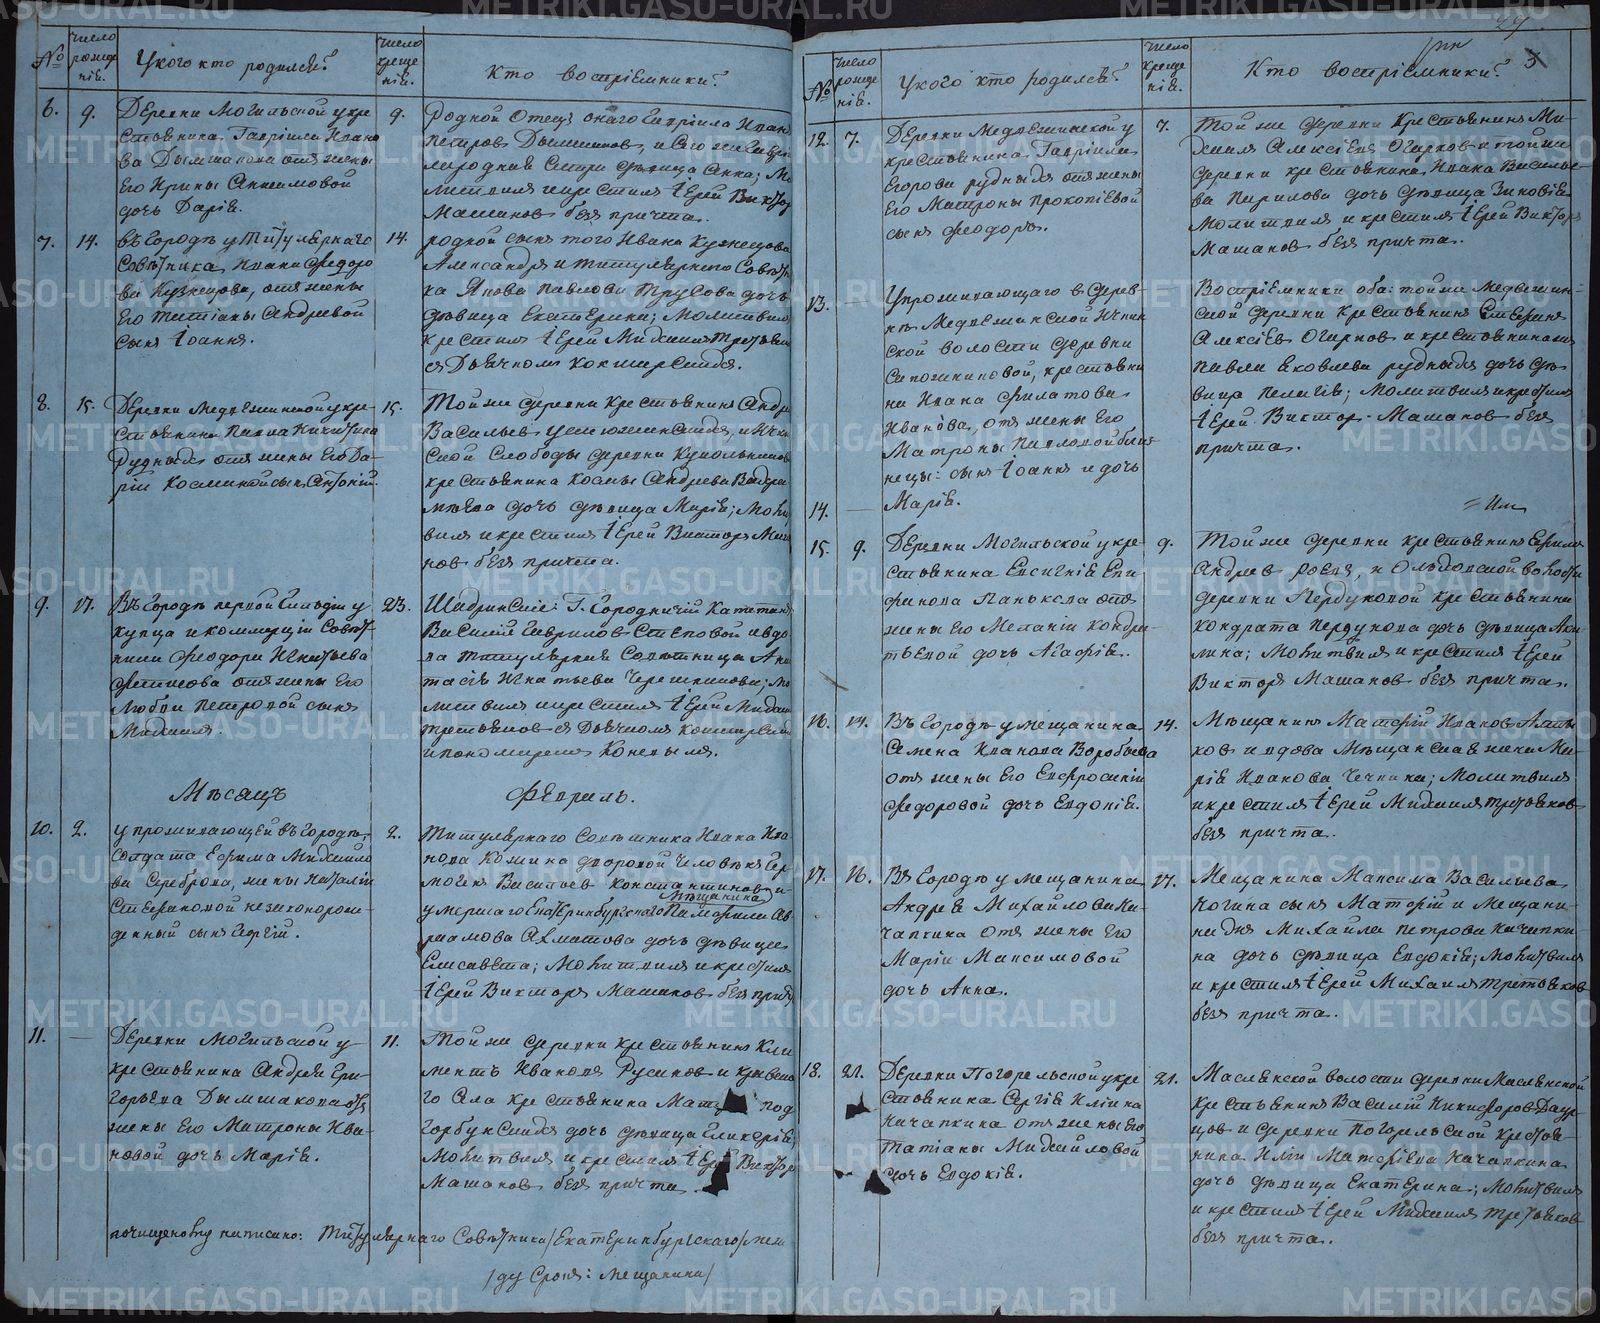 №
Число рожденія.
У кого кто родился?
Число крещенія.
Кто воспріемники?
6.
9.
Деревни Могильской у кре-
стьянина Гавріила Ивано
ва Дымшакова отъ жены
Его Ирины
дочь Дарія.
9.
Родной Отецъ онаго Гавріила Иванъ
Петровъ Дымшаковъ, и Его же Гавріи
ла родная Сестра дѣвица Анна; Мо
литвилъ и крестилъ Іерей Викторъ
Машановъ безъ причта.
7.
14.
въ Городѣ у Титулярнаго
Совѣтника Ивана Федоро
ва Кузнецова, отъ жены
Его Татіаны Андреевой
сынъ Іоаннъ.
14.
родной сынъ того Ивана Кузнецова
Александръ и титулярнаго Совѣтни
ка Якова Павлова Трусова дочь
дѣвица Екатерина; Молитвилъ
крестилъ Іерей Михаилъ Третьяковъ
съ Дьячкомъ
8.
15.
Деревни Медвежинской у кре-
стьянина Павла Никитина
Рудныхъ отъ жены Его Да-
ріи Косминой сынъ Антоній.
15.
Той же деревни крестьянинъ Андрей
Васильевъ
ской Слободы деревни
крестьянина Космы Андреева
дочь дѣвица Марія; Молит
вилъ и крестилъ Іерей Викторъ Маша
новъ безъ причта.
9.
17.
Въ Городѣ первой Гильдіи у
купца и коммерціи Совѣт-
ника Феодора Игнатьева
Фетисова отъ жены Его
Любви Петровой сынъ
Михаилъ.
23.
Шадринскіе: Г. Городничій Капитанъ
Василій Гавриловъ Степовой и вдо
ва титулярная Совѣтница Ана
тасія Игнатьева Черешкинова; Мо
литвилъ и крестилъ Іерей Михаилъ
Третьяковъ съ Дьячкомъ
и пономаремъ
Мѣсяцъ
Февраль.
10.
2.
У проживающей въ городѣ,
солдата Ефима Михайло
ва Сереброва, жены Наталіи
Стефановой незаконорож-
денный сынъ Георгій.
2.
Титулярнаго Совѣтника Ивана Ива
нова Кокина дворовой человѣкъ Ер
могенъ Васильевъ Константиновъ и
Мѣщанина
умершаго Екатеринбургскаго Памфила Ав
раамова Ахматова дочь дѣвица
Елисавета; Молитвилъ и крестилъ
Іерей Викторъ Машановъ безъ прич
11.
—
Деревни Могильской у
крестьянина Андрея Гри-
горьева Дымшакова отъ
жены Его Матроны Ива-
новой дочь Марія.
11.
Той же деревни крестьянинъ Кли
ментъ Ивановъ Русиновъ и
го Села крестьянина
дочь дѣвица Гликерія;
Молитвилъ и крестилъ Іерей Викторъ
Машановъ безъ причта.
почищеному написано: Титулярнаго Совѣтника /Екатеринбургскаго/ меж
/ду строкъ: мещанина/
29
три
3
№
Число рожденія.
У кого кто родился?
Число крещенія.
Кто воспріемники?
12.
7.
Деревни Медвежинской у
крестьянина Гавріила
Егорова Рудныхъ отъ жены
Его Матроны Прокопіевой
сынъ Феодоръ.
7.
Той же деревни крестьянинъ Ми-
хаилъ Алексіевъ Огарковъ и той же
деревни крестьянина Ивана Василье-
ва дочь дѣвица Зиновія
Молитвилъ и крестилъ Іерей Викторъ
Машановъ безъ причта.
13.
—
У проживающаго въ дерев-
нѣ Медвежинской
ской волости деревни
Сапожниковой, крестьяни
на Ивана Филатова
Иванова, отъ жены Его
Матроны Павловой близ-
нецы: сынъ Іоаннъ и дочь
14.
—
Марія.
Воспріемники оба: той же Медвежин-
ской деревни крестьянинъ Стефанъ
Алексіевъ Огарковъ и крестьянина
Павла Яковлева Рудныхъ дочь дѣ-
вица Пелагія; Молитвилъ и крестилъ
Іерей Викторъ Машановъ безъ
причта.
15.
9.
Деревни Могильской у кре-
стьянина Евсигнія Епи-
фанова Панькова отъ
жены Его Меланіи Кондра-
тьевой дочь Агафія.
9.
Той же деревни крестьянинъ Ефимъ
Андреевъ и Ольховской волости
деревни Пердуновой крестьянина
Кондрата Пердунова дочь дѣвица Аки-
лина; Молитвилъ и крестилъ Іерей
Викторъ Машановъ безъ причта.
16.
14.
Въ Городѣ у мещанина
Семена Иванова Воробьева
отъ жены Его Евфросиніи
Федоровой дочь Евдокія.
14.
Мѣщанинъ Матфій Ивановъ
ковъ и вдова Мѣщанская жена Ма-
рія Иванова Чечкина; Молитвилъ
и крестилъ Іерей Михаилъ Третьяковъ
безъ причта.
17.
16.
Въ Городѣ у мещанина
Андрея Михайлова Ка-
чапкина отъ жены Его
Маріи Максимовой
дочь Анна.
17.
Мещанина Максима Васильева
Ногина сынъ Матфій и Мещани-
на Михайла Петрова Качапки-
на дочь дѣвица Евдокія; Молитвилъ
и крестилъ Іерей Михаилъ Третьяковъ
безъ причта.
18.
21.
Деревни Погорельской у кре
стьянина Сергія Ильина
Качапкина отъ жены Его
Татіаны Михайловой
дочь Евдокія.
21.
Маслянской волости деревни Маслянской
крестьянинъ Василій Никифоровъ Даур-
цовъ и деревни Погорельской крестья-
нина Иліи Матфіева Качапкина
дочь дѣвица Екатерина; Молитвилъ
и крестилъ Іерей Михаилъ Третьяковъ
безъ причта.
METRIKI.GASO-URAL.RU